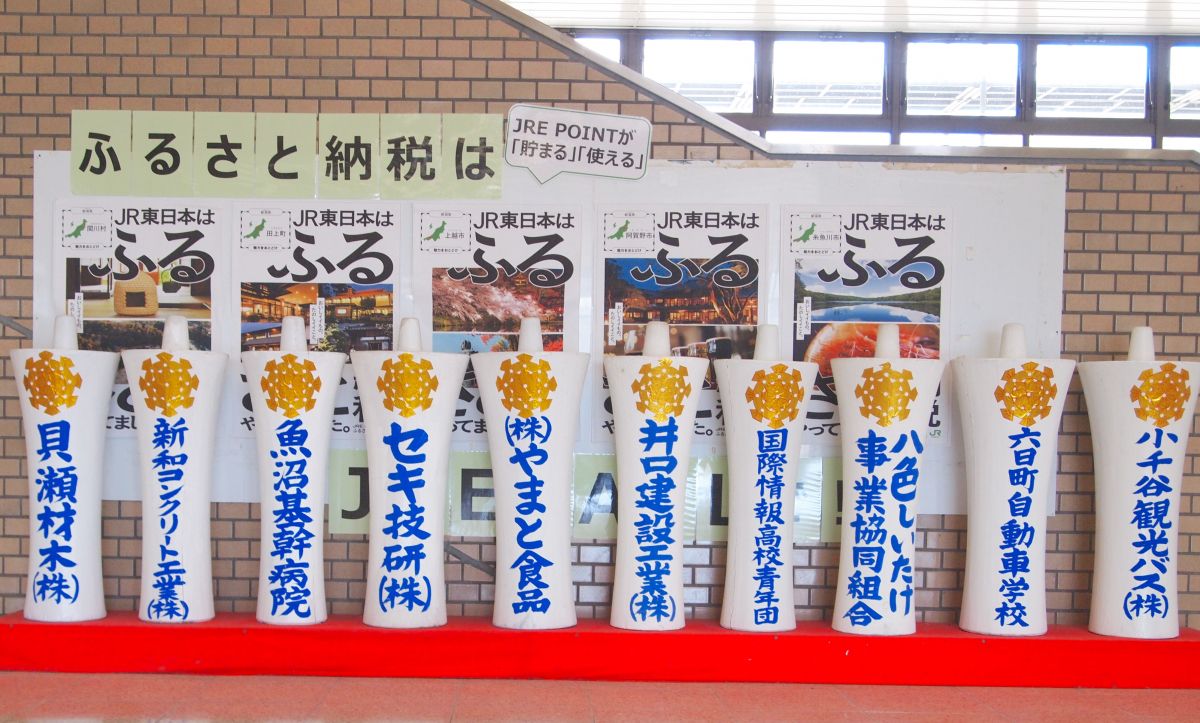 ふるさと納税は
JRE POINTが
「貯まる」「使える」
関川村
JR東日本は
ふる
田上町
JR東日本は
ふる
上越市
JR東日本は
ふる
阿賀野市
JR東日本は
ふる
糸魚川市
JR東日本は
ふる
貝瀬材木(株)
新和コンクリート工業(株)
魚沼基幹病院
セキ技研(株)
(株)やまと食品
井口建設工業(株)
国際情報高校青年団
八色しいたけ
事業協同組合
六日町自動車学校
小千谷観光バス(株)